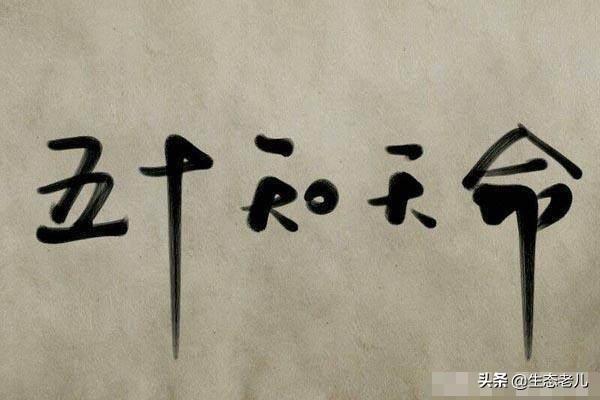 五十知天命
头条 @生态老儿